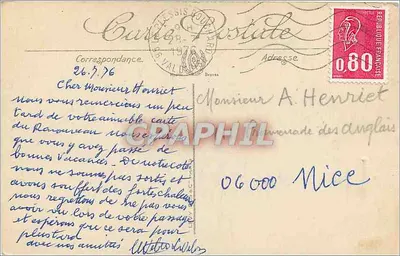 Carte Postale
Correspondance
Adresse
26.7.76
Cher Monsieur Henriet
nous vous remercions un peu
tard de votre aimable carte
du Renouveau nous
que vous y avez passé de
bonnes vacances. De notre côté
nous ne sommes pas sortis et
avons souffert des fortes chaleurs
nous regrettons de ne pas vous
avoir vu lors de votre passage
et espérons que ce sera pour
plus tard
avec nos amitiés
REPUBLIQUE FRANÇAISE
0,80
Monsieur A. Henriet
Promenade des Anglais
06000 Nice
CARAPHIL